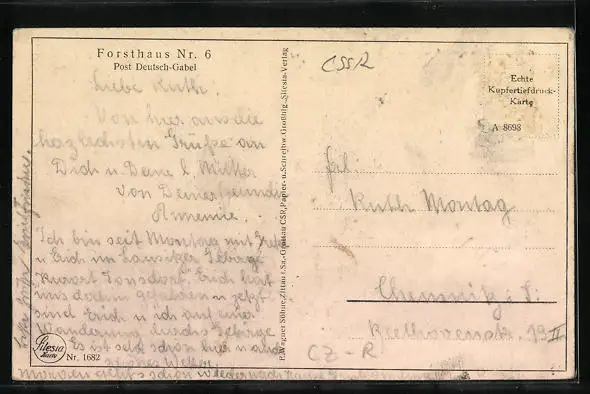 Forsthaus Nr. 6
Post Deutsch-Gabel
Liebe Ruth!
Von hier aus die
herzlichsten Grüße an
Dich u. Deine l. Mutter
von Deiner Freundin
Annemie.
Ich bin seit Montag mit
u. Erich im Lausitzer Gebirge
Kurort Jonsdorf. Erich hat
uns gefahren u. jetzt
sind Erich u. ich auf einer
Wanderung durchs Gebirge
Es ist sehr schön hier u. auch
schönes Wetter
morgen geht's schon wieder nach
Silesia
Karte
Nr. 1682
P. Wagner Söhne, Zittau i. Sa.-Grottau CSR, Papier- u. Schreibw. Großhlg. „Silesia-Verlag
CSR
Echte
Kupfertiefdruck-
Karte
A 8698
Frl.
Ruth Montag
Chemnitz i. S.
Beethovenstr. 19 II
CZ-R